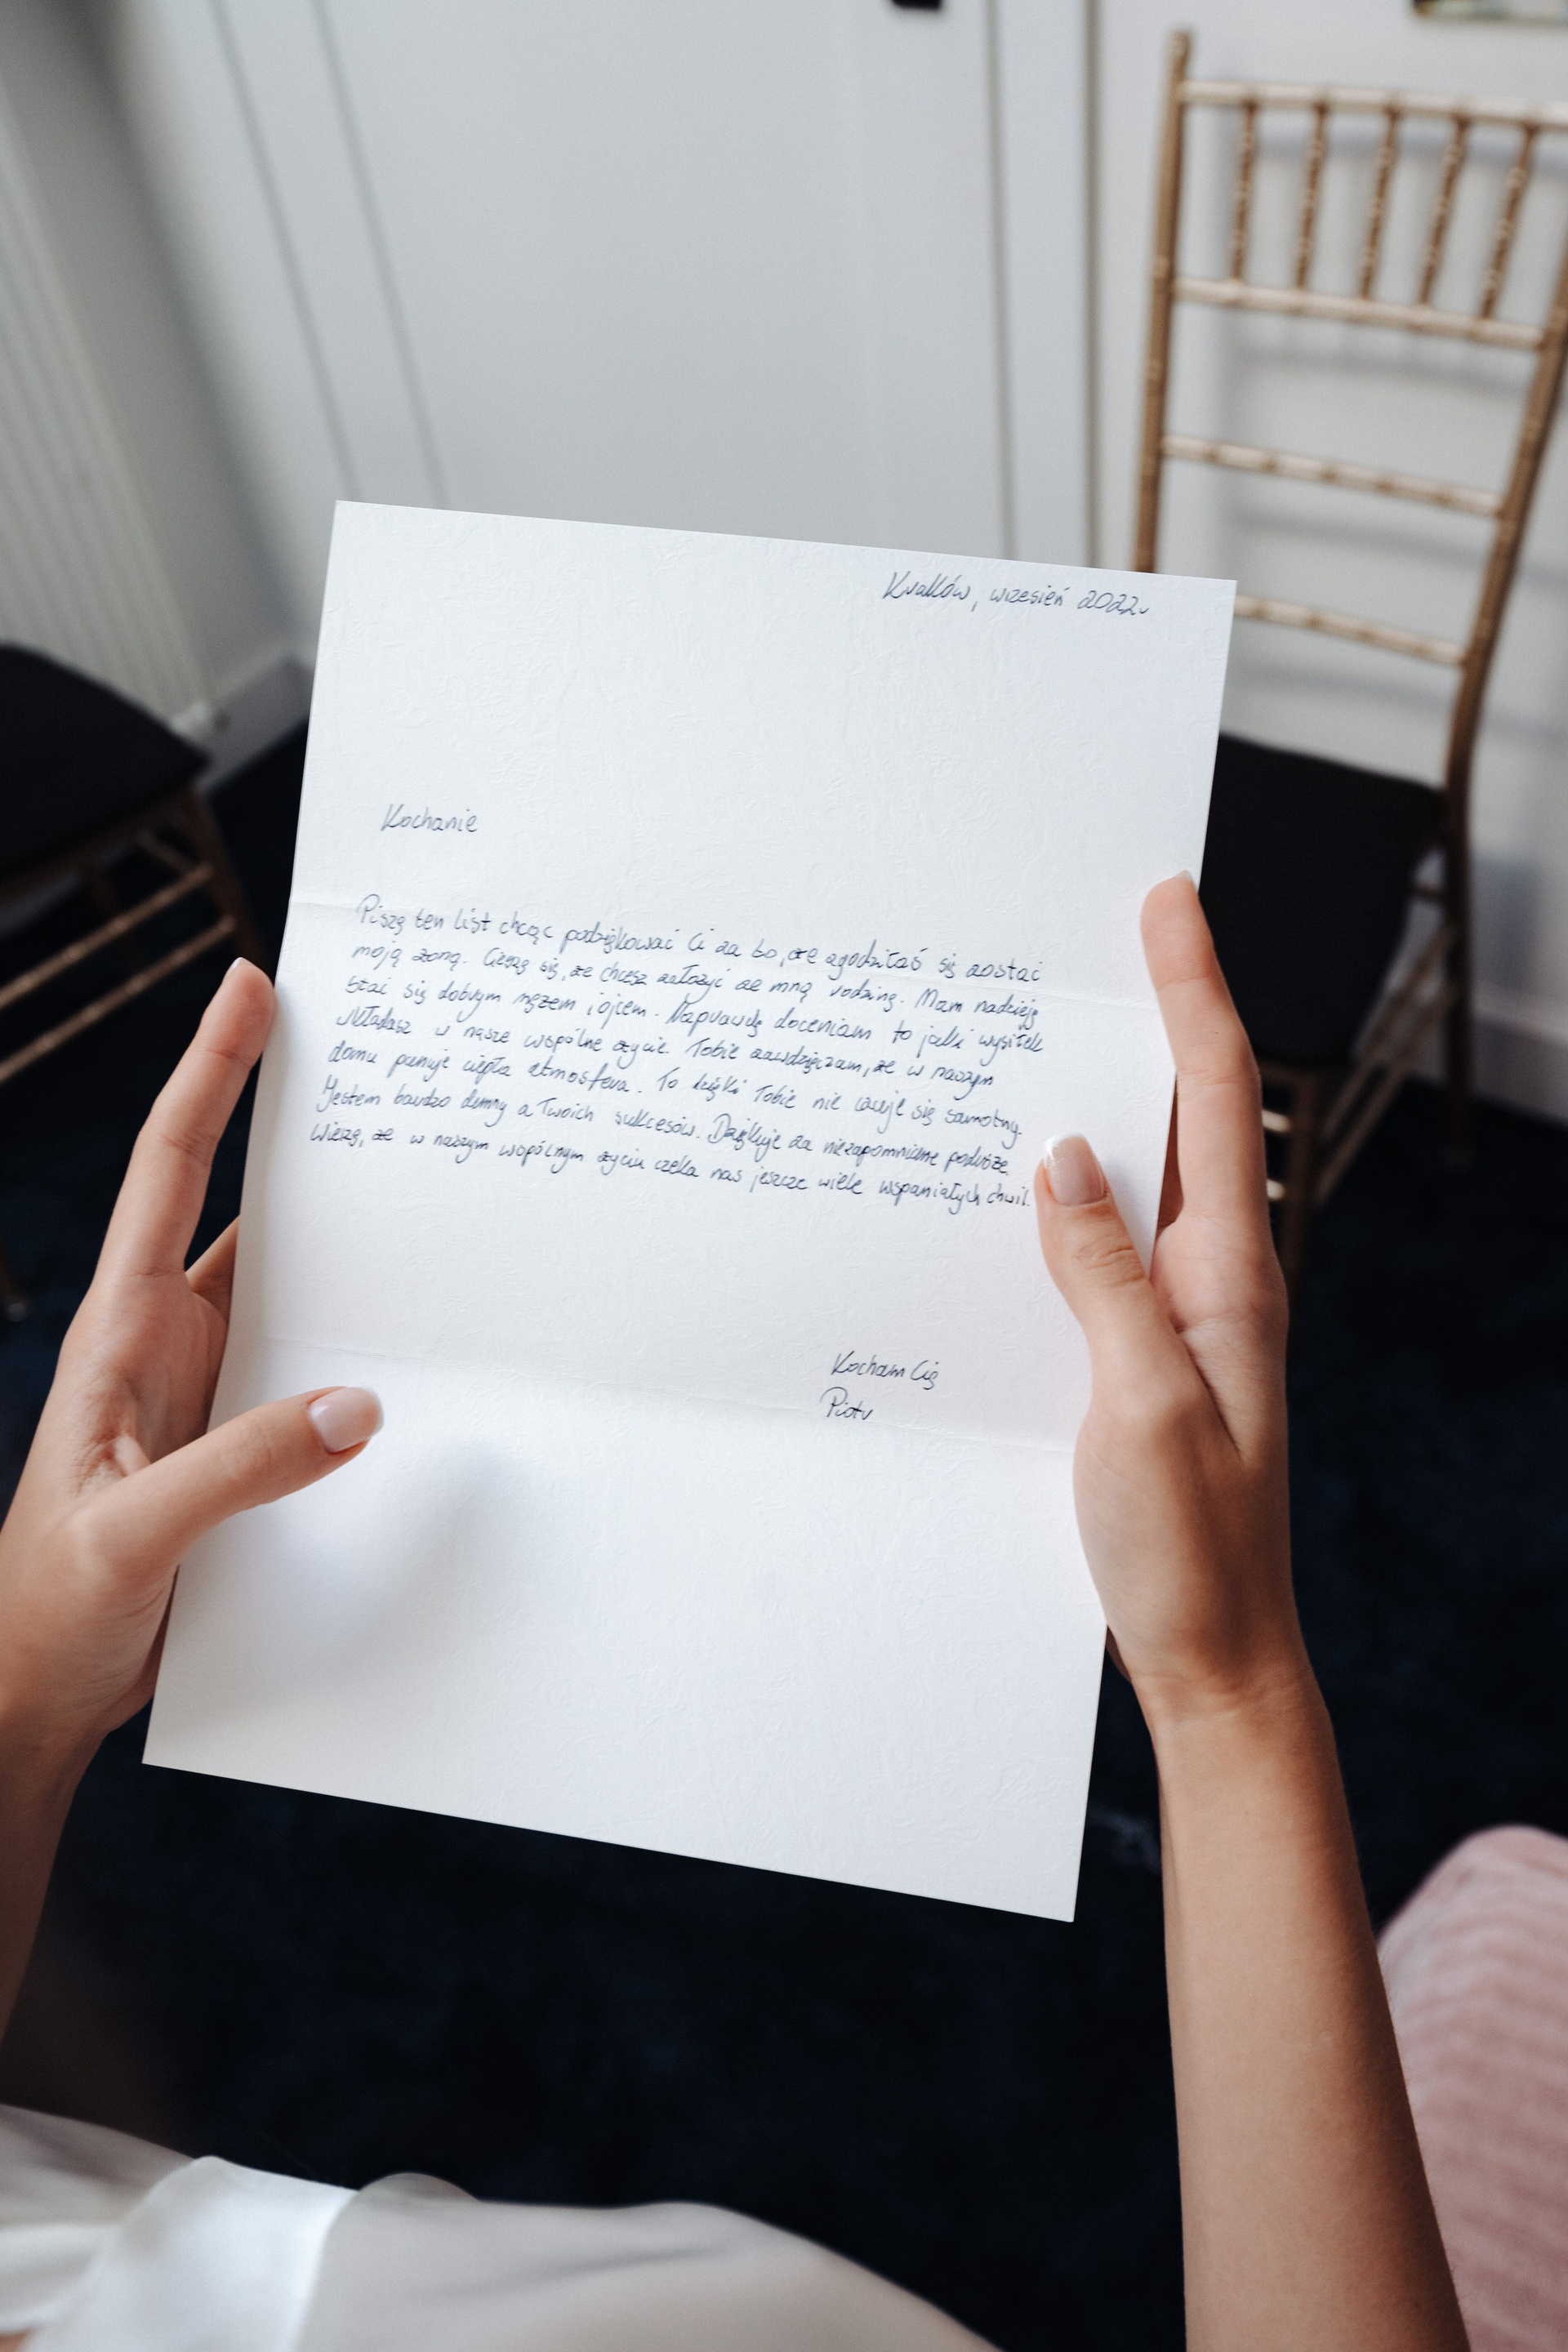 Kraków, wrzesień 2022r
Kochanie
Piszę ten list chcąc podziękować Ci za to, że zgodziłaś się zostać
moją żoną. Cieszę się, że chcesz założyć ze mną rodzinę. Mam nadzieję
stać się dobrym mężem i ojcem. Naprawdę doceniam to jaki wysiłek
wkładasz w nasze wspólne życie. Tobie zawdzięczam, że w naszym
domu panuje ciepła atmosfera. To dzięki Tobie nie czuję się samotny.
Jestem bardzo dumny z Twoich sukcesów. Dziękuję za niezapomniane podróże.
Wierzę, że w naszym wspólnym życiu czeka nas jeszcze wiele wspaniałych chwil.
Kocham Cię
Piotr